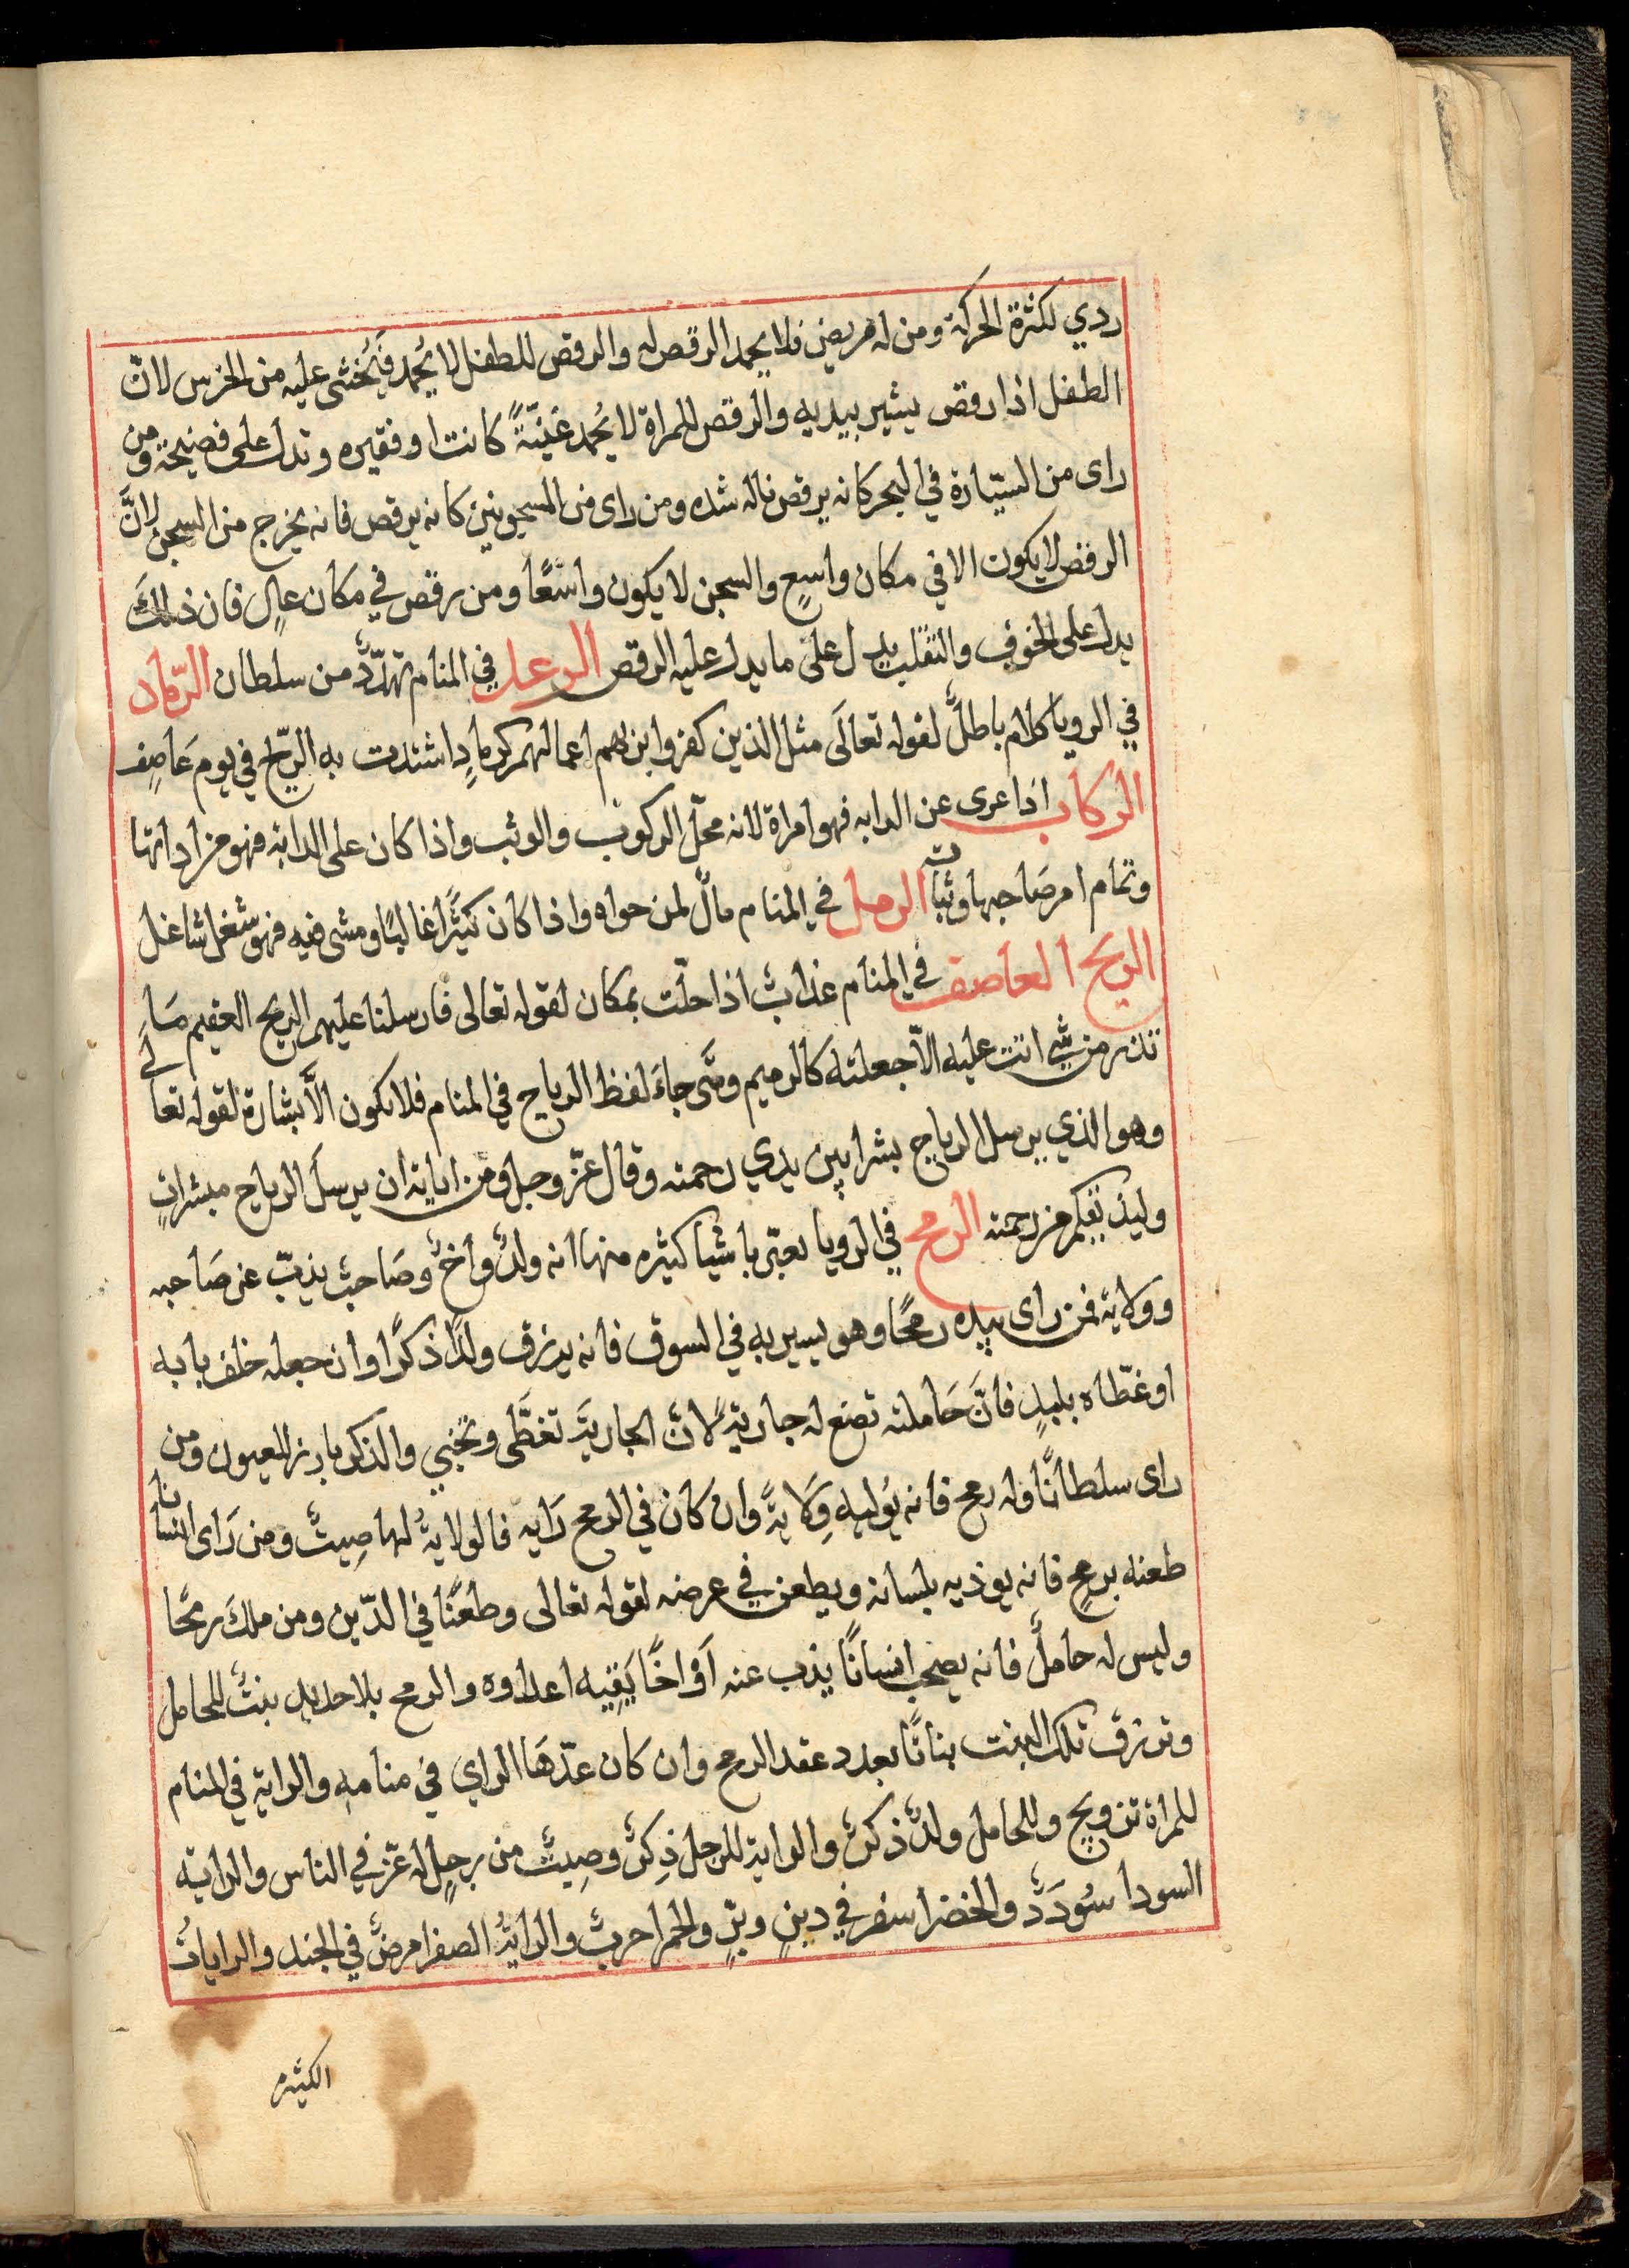 ردي لكثرة الحركة ومن له مريض فلا يحمد الرقص له والرقص للطفل لا يُحمد فَيُخشى عليه من الخرس لانّ
الطفل اذا رقص يشير بيديه والرقص للمراة لا يُحمد غنيّةً كانت او فقيره وتدل على فضيحة ومن
راى من السيّارة في البحر كانه يرقص ناله شده ومن راى من المسجونين كانه يرقص فانه يخرج من السجن لانَّ
الرقص لا يكون الا في مكان واسعٍ والسجن لا يكون واسعًا ومن رقص في مكان عالٍ فان ذلكَ
يدل على الخوف والتقلب يدل على ما يدل عليه الرقص الرعد في المنام تهدّدٌ من سلطان الرّماد
في الرويا كلام باطلٌ لقوله تعالَى مثل الذين كفروا بربهم اعمالهم كرمادٍ اشتدت به الرّيح في يوم عَاصِف
الركاب اذا عرى عن الدابه فهو امراة لانه محلّ الركوب والوثب واذا كان على الدابة فهو من اداتها
وتمام امر صَاحبها وثباته الرمل في المنام مالٌ لمن حواه واذا كان كثيرًا غالبًا ومشى فيه فهو شغل شاغل
الريح العاصف في المنام عذابٌ اذا حلّت بمكان لقوله تعالى فارسلنا عليهم الريح العقيم مَا
تذر من شيٍ اتت عليه الاّ جعلته كالرميم ومتى جاءَ لفظ الرياح في المنام فلا يكون الاَّ بشارة لقوله تعالَى
وهو الذي يرسل الرياح بشرا بين يدي رحمته وقال عزّ وجل ومن اياته ان يرسلَ الرياح مبشراتٍ
وليذيقكم من رحمته الرمح في الرويا يعبّر باشيا كثيره منها انه ولدٌ واخٌ وصَاحبٌ يذبّ عن صَاحبه
وولاية فمن راى بيده رمحًا وهو يسير به في السوق فانه يرزق ولدًا ذكرًا وان جعله خلف بابه
او غطّاه بلبدٍ فانَّ حَاملته تضع له جاريةً لانّ الجاريَة تغطَّى وتخبي والذكر بارز للعيون ومن
راى سلطانًا ناوله رمح فانه يُوليه وِلَايةً وان كان في الرمح رَايه فالولايةُ لها صِيتٌ ومن رَاى انسانا
طعنه برمحٍ فانه يوذيه بلسانه ويطعن في عرضه لقوله تعالى وطعنًا في الدّين ومن ملكَ رمحًا
وليس له حاملٌ فانه يصحب انسانًا يذب عنه اَوْ اخًا يَقِيه اعداوه والرمح بلا حديدٍ بنتٌ للحامل
وترزق تلك البنت بناتًا بعدد عقد الرمح وان كان عدّهَا الراي في منامه والراية في المنام
للمراة تزويج وللحامل ولدٌ ذكرٌ والراية للرجل ذِكرٌ وصِيتٌ من رجلٍ له عزّ في الناس والراية
السودا سُودَدٌ والخضرا سفر في دينٍ وبرٍّ والحمرا حربٌ والرايةُ الصفرا مرضٌ في الجند والراياتُ
الكثيره